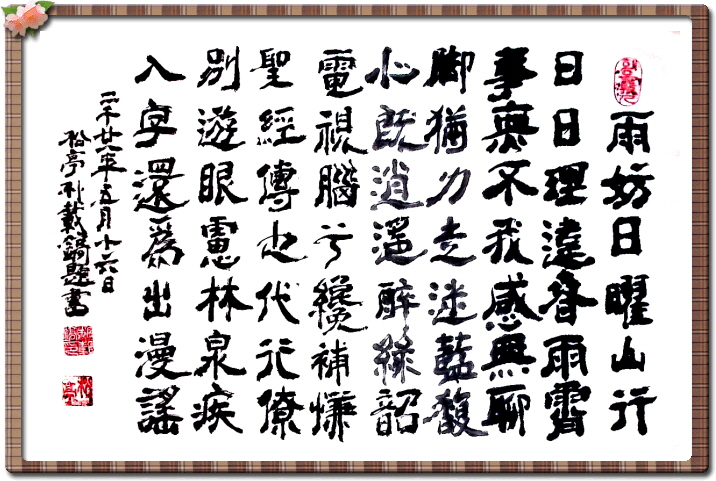 雨妨日曜山行
日日理違雨霽
事無不我感無聊
脚猶力走迷藍馥
心旣逍遥醉綠韶
電視腦兮纔補慊
聖經傳也代行僚
別遊眼慮林泉疾
入字還爲出漫謠
二千廿年五月十六日
松亭朴載題書
松亭